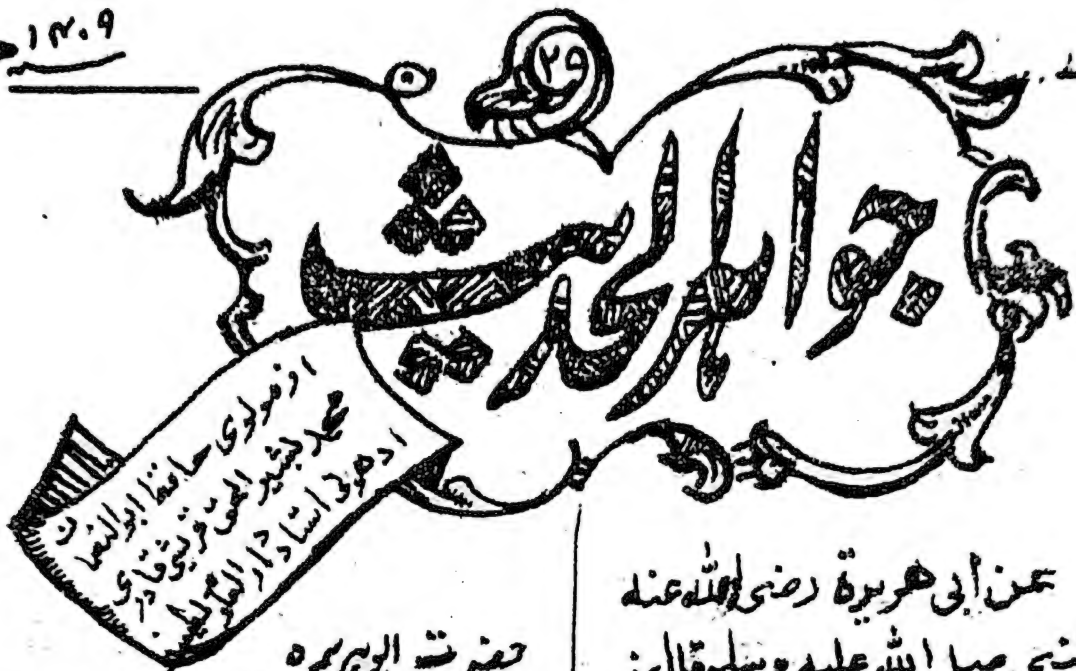 ١٣٠٩
٢٩
جواہر الحدیث
از مولوی حافظ ابو النعمان
محمد بشیر الحق قریشی قادری
ادھونی استاد دار العلوم
عن أبی ھریرة رضی اللہ عنہ
صلی اللہ علیہ وسلم قال
حضرت ابو ہریرہ